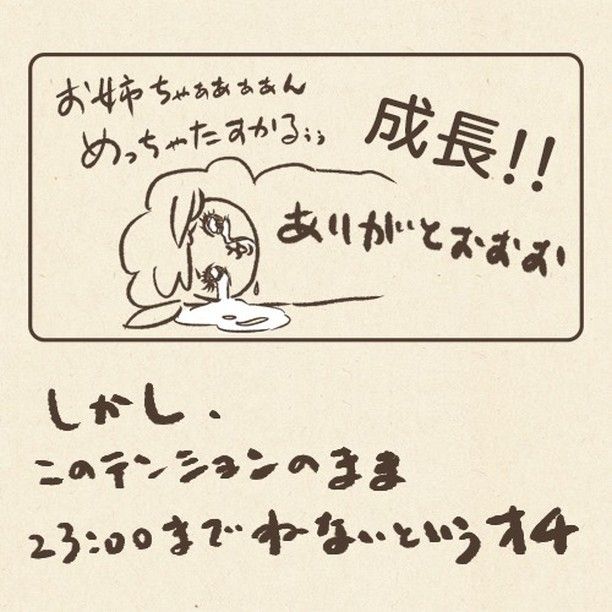 お姉ちゃぁぁぁぁん
めっちゃたすかる;;
成長!!
ありがとおおお
しかし、
このテンションのまま
23:00までねないというオチ